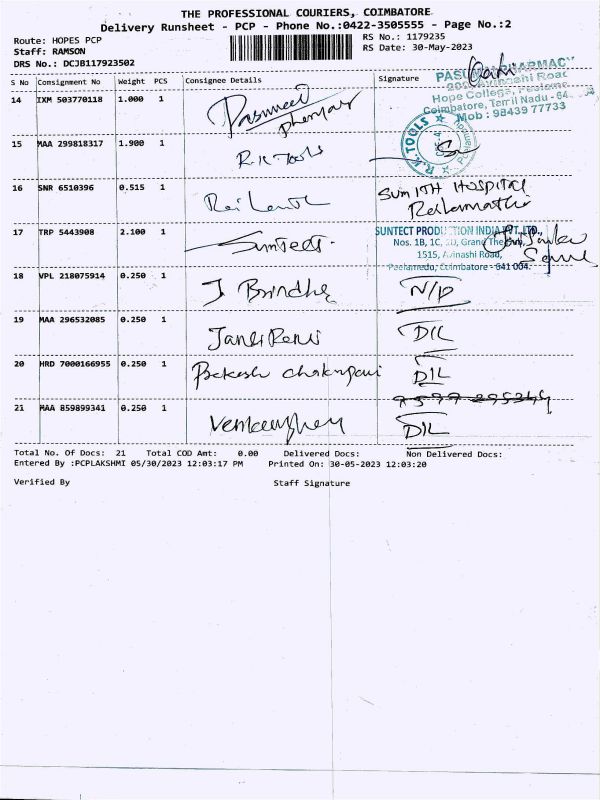 THE PROFESSIONAL COURIERS, COIMBATORE
Delivery Runsheet - PCP - Phone No.:0422-3505555 - Page No.:2
Route: HOPES PCP RS No.: 1179235
Staff: RAMSON RS Date: 30-May-2023
DRS No.: DCJB117923502
S No Consignment No Weight PCS Consignee Details Signature
14 IXM 503770118 1.000 1
PASUMAI PHARMACY
Avinashi Road
Hope College,
Coimbatore, Tamil Nadu - 64
Mob : 98439 77733
15 MAA 299818317 1.900 1 R.K Tools
R.K. TOOLS
16 SNR 6510396 0.515 1 HOSPITAL
17 TRP 5443908 2.100 1 Suntect
SUNTECT PRODUCTION INDIA PVT. LTD.,
Nos. 1B, 1C, 1D, Grand
1515, Avinashi Road,
Peelamedu, Coimbatore - 641 004.
18 VPL 218075914 0.250 1 J Brindha N/D
19 MAA 296532085 0.250 1 D/L
20 HRD 7000166955 0.250 1 D/L
21 MAA 859899341 0.250 1 D/L
Total No. Of Docs: 21 Total COD Amt: 0.00 Delivered Docs: Non Delivered Docs:
Entered By :PCPLAKSHMI 05/30/2023 12:03:17 PM Printed On: 30-05-2023 12:03:20
Verified By Staff Signature